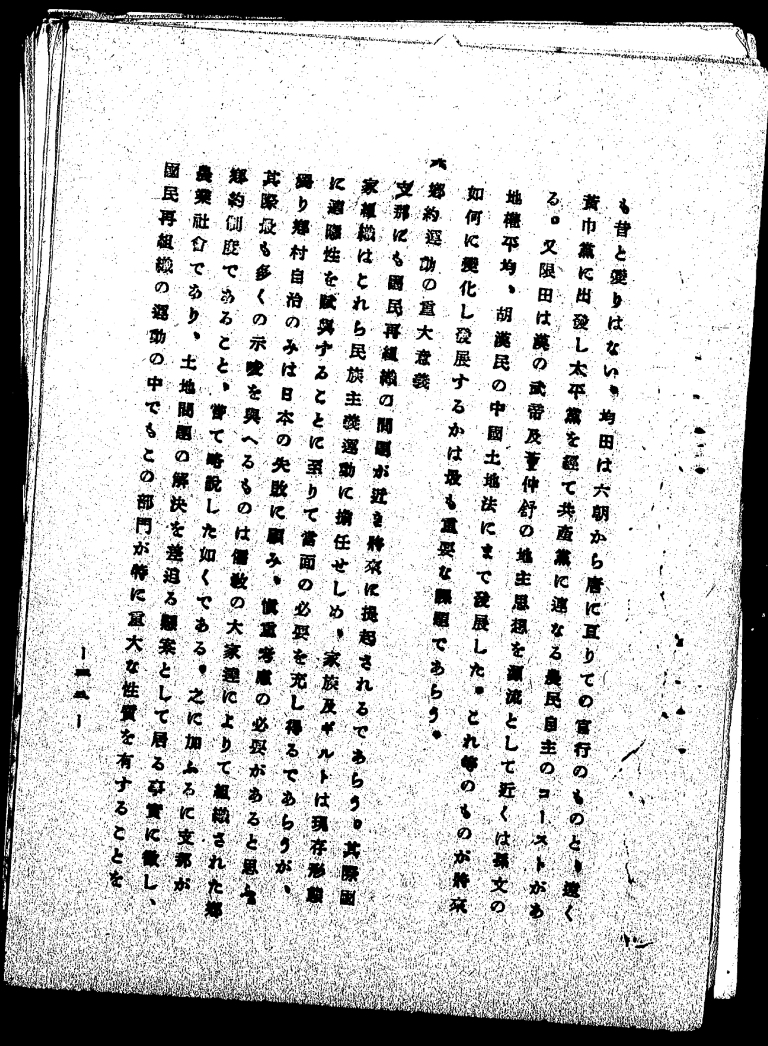 も昔と變りはない。均田は六朝から唐に亘りての官行のものと、遠く
黃巾黨に出發し太平黨を經て共產黨に連なる農民自主のコーストがあ
る。又限田は漢の武帝及董仲舒の地主思想を源流として近くは孫文の
地權平均、胡漢民の中國土地法にまで發展した。これ等のものが將來
如何に變化し發展するかは最も重要な課題であらう。
六 鄕約運動の重大意義
支那にも國民再組織の問題が近き將來に提起されるであらう。其際國
家組織はこれら民族主義運動に擔任せしめ、家族及ギルトは現存形態
に適應性を賦與することに至りて當面の必要を充し得るであらうが、
獨り鄕村自治のみは日本の失敗に顧み、愼重考慮の必要があると思ふ
其際最も多くの示唆を與へるものは儒敎の大家達によりて組織された鄕
鄕約制度であること、嘗て略說した如くである。之に加ふるに支那が
農業社會であり、土地問題の解決を差迫る懸案として居る事實に徵し、
國民再組織の運動の中でもこの部門が特に重大な性質を有することを